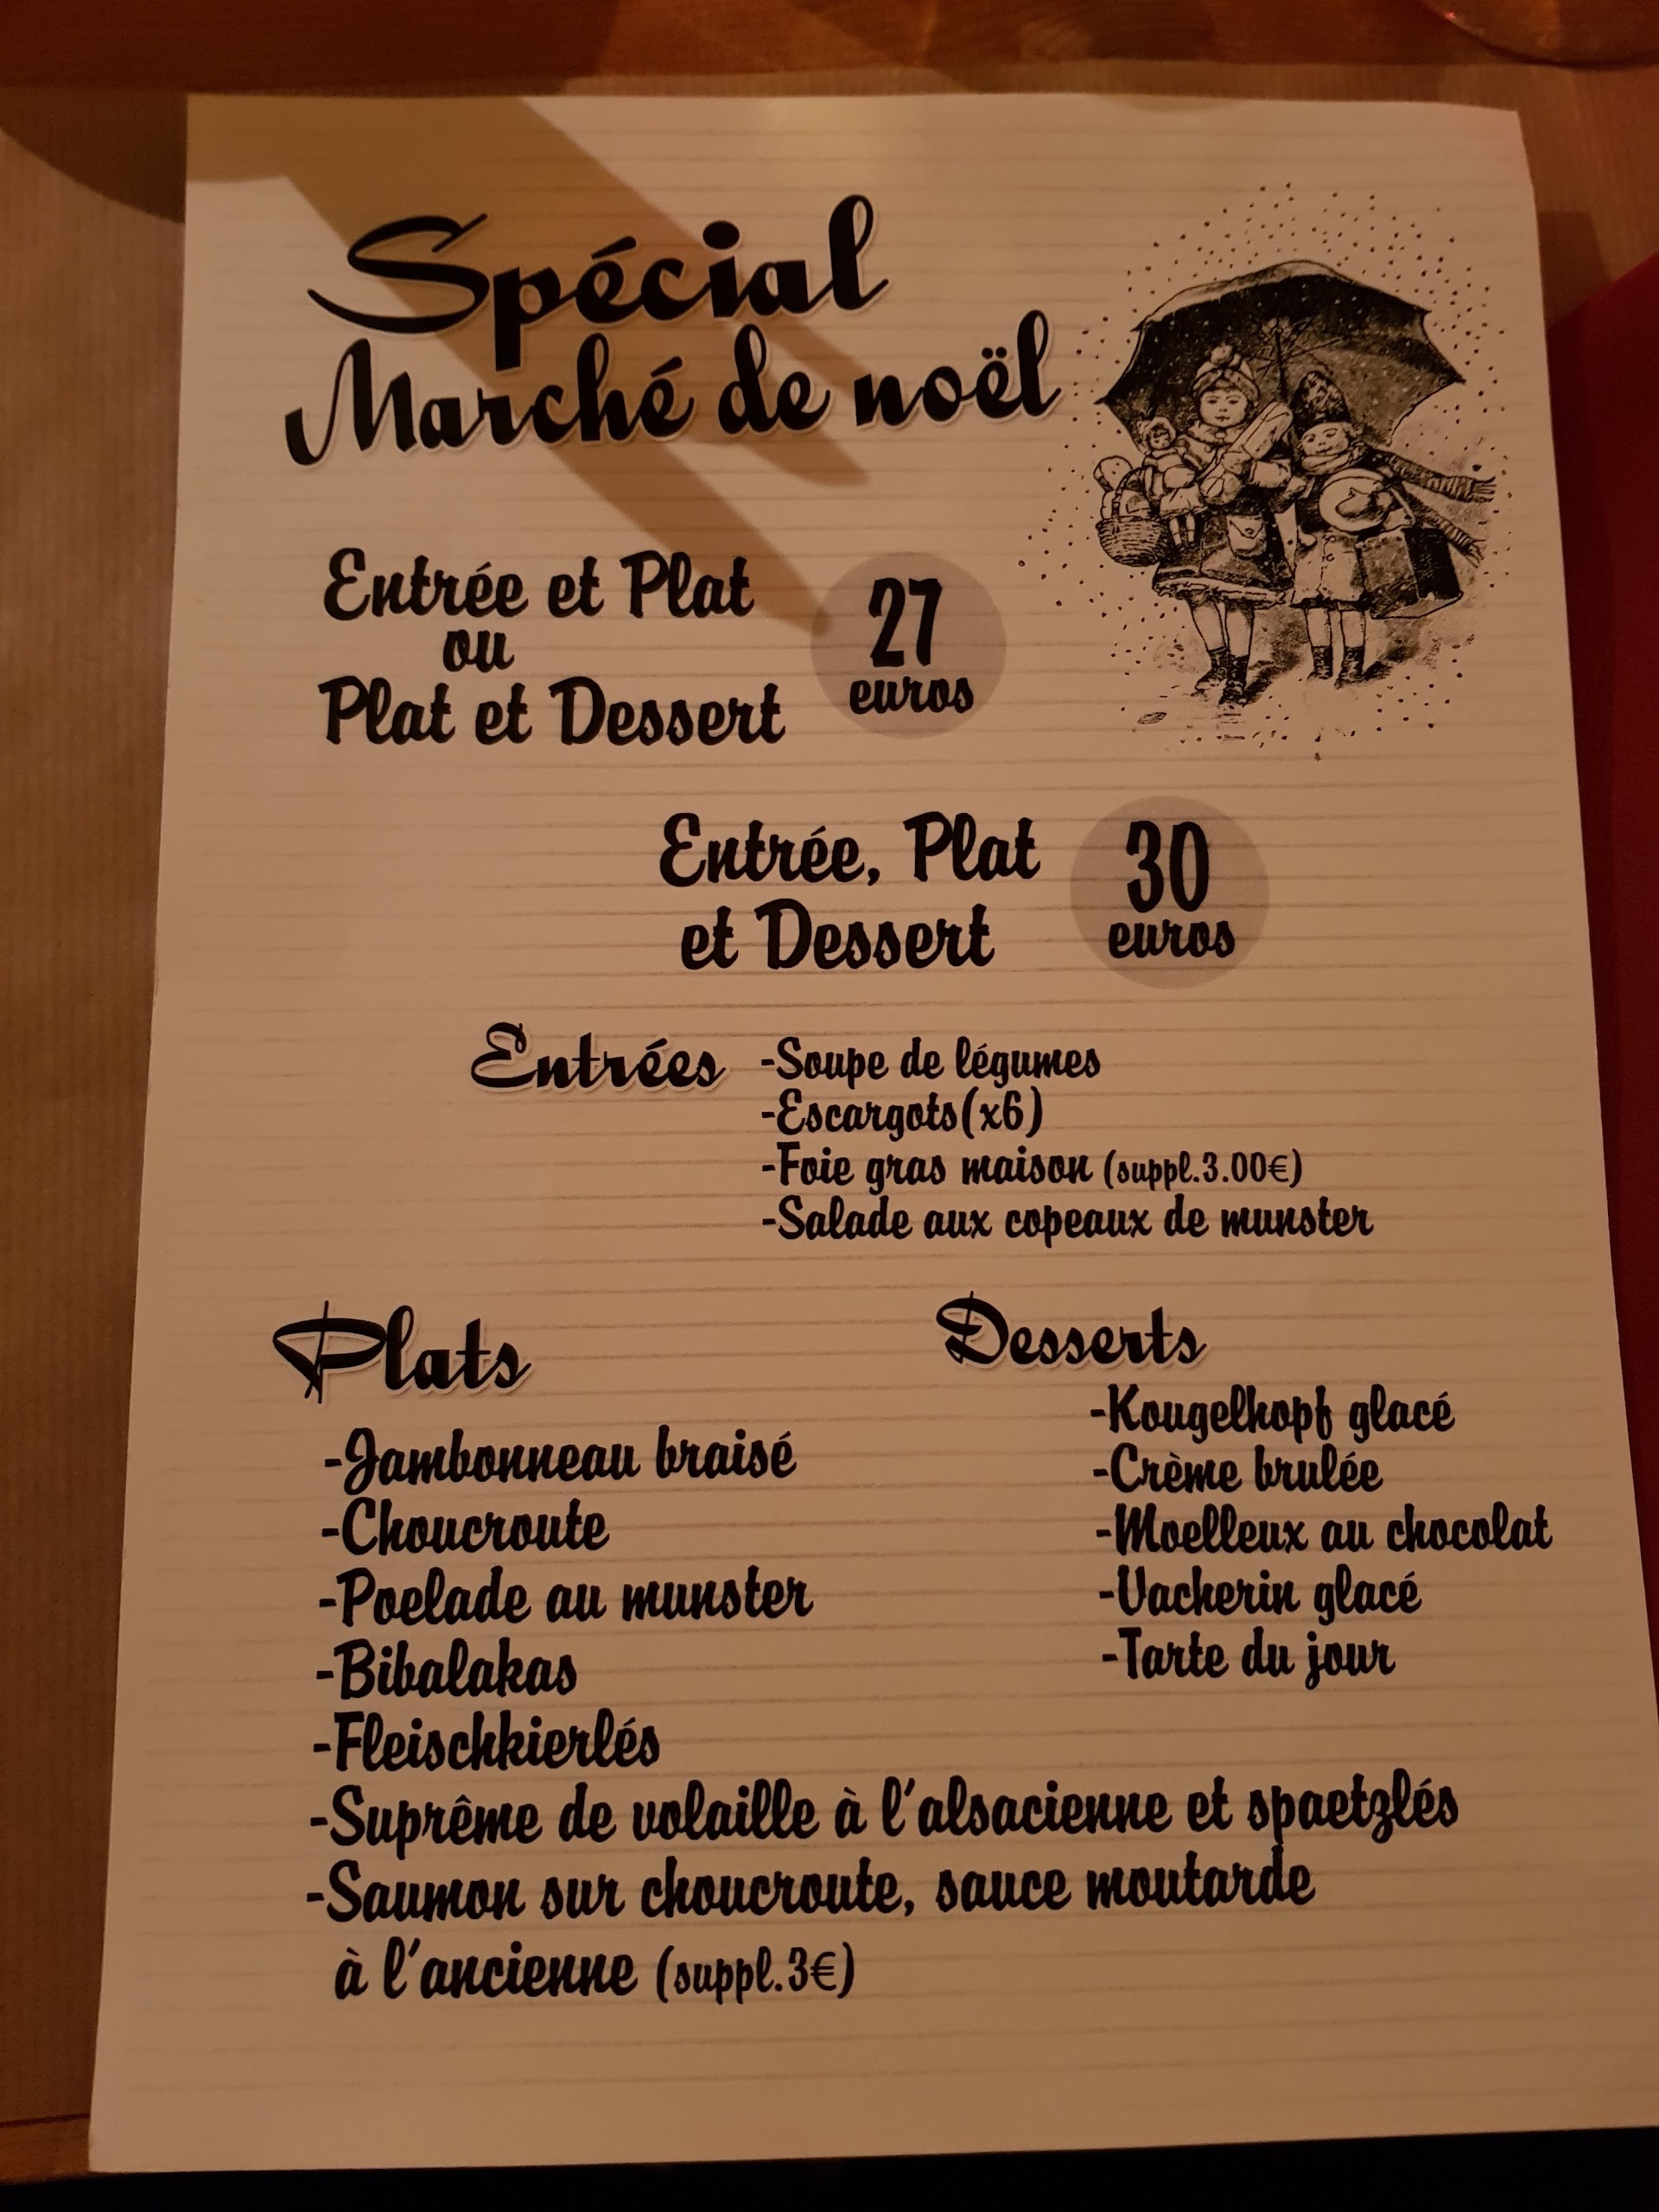 Spécial
Marché de noël
Entrée et Plat
ou
Plat et Dessert
27
euros
Entrée, Plat
et Dessert
30
euros
Entrées
-Soupe de légumes
-Escargots(x6)
-Foie gras maison (suppl.3.00€)
-Salade aux copeaux de munster
Plats
-Jambonneau braisé
-Choucroute
-Poelade au munster
-Bibalakas
-Fleischkierlés
-Suprême de volaille à l'alsacienne et spaetzlés
-Saumon sur choucroute, sauce moutarde
à l'ancienne (suppl.3€)
Desserts
-Kougelhopf glacé
-Crème brulée
-Moelleux au chocolat
-Vacherin glacé
-Tarte du jour